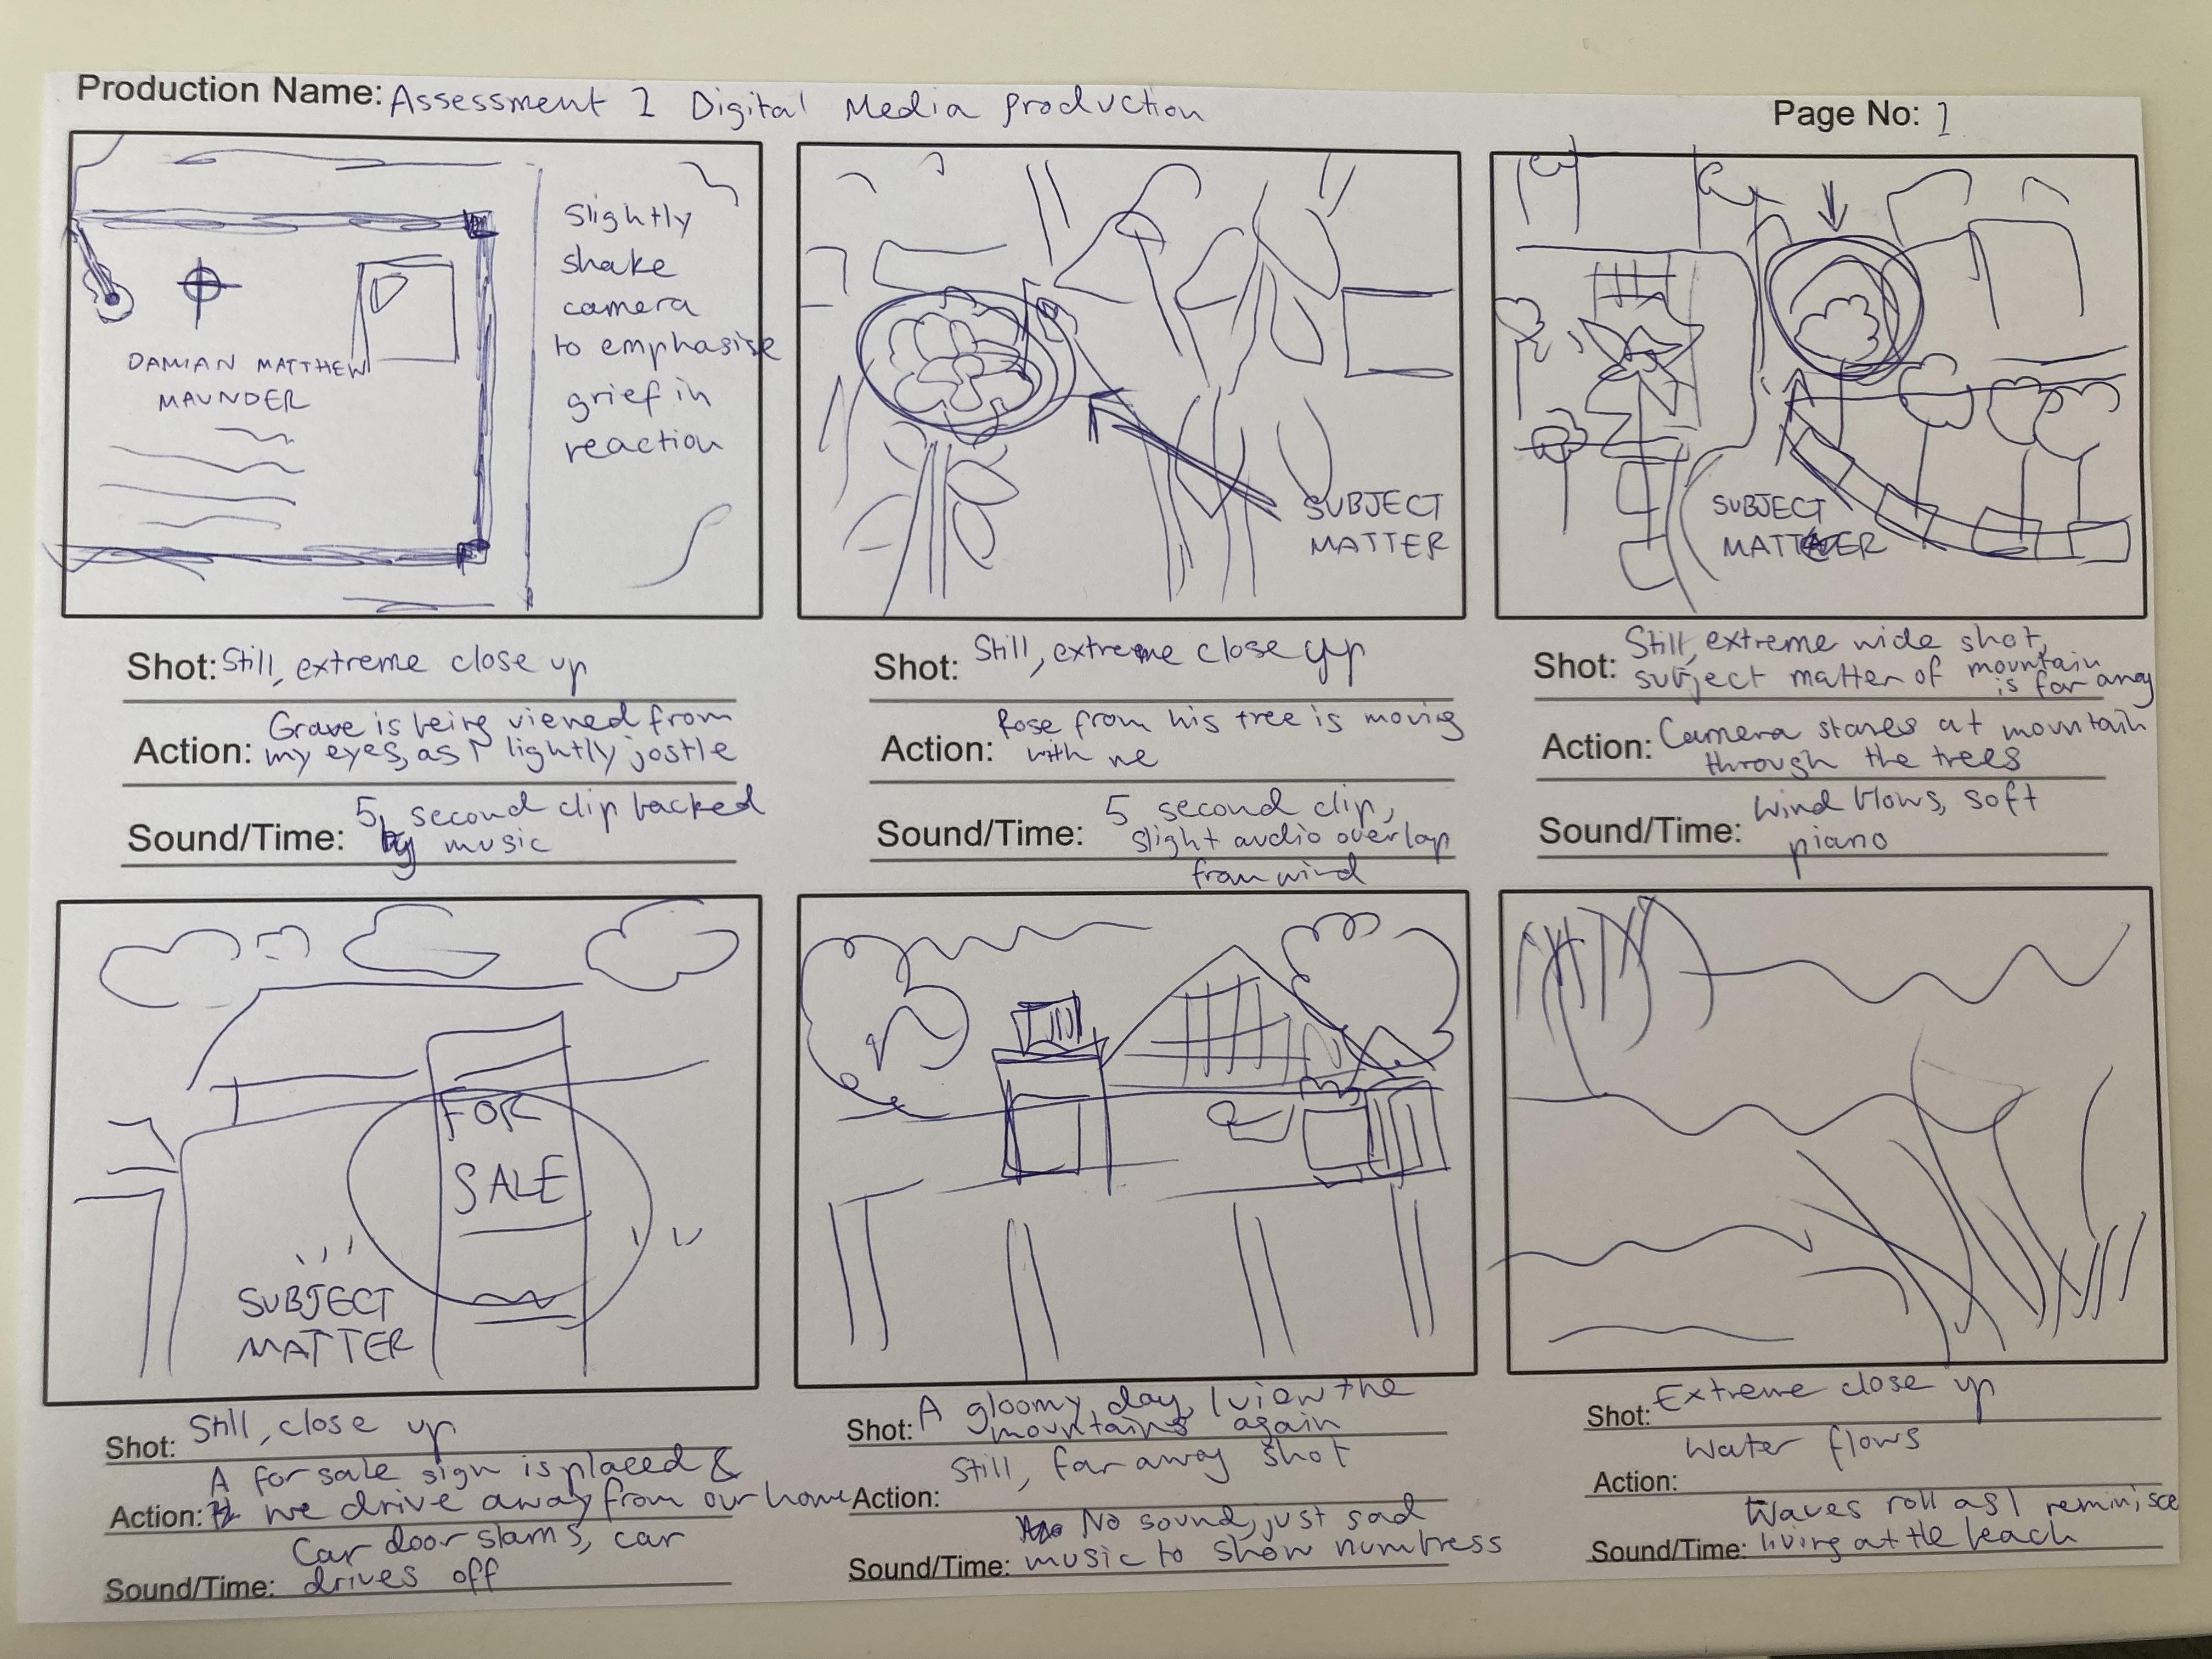 Production Name: Assessment 1 Digital Media production
Page No: 1
DAMIAN MATTHEW
MAUNDER
Slightly
shake
camera
to emphasise
grief in
reaction
SUBJECT
MATTER
SUBJECT
MATTER
Shot: Still, extreme close up
Action: Grave is being viewed from
my eyes, as I lightly jostle
Sound/Time: 5 second clip backed
by music
Shot: Still, extreme close up
Action: Rose from his tree is moving
with me
Sound/Time: 5 second clip,
slight audio overlap
from wind
Shot: Still, extreme wide shot,
subject matter of mountain
is far away
Action: Camera stares at mountain
through the trees
Sound/Time: Wind blows, soft
piano
FOR
SALE
SUBJECT
MATTER
Shot: Still, close up
Action: A for sale sign is placed &
we drive away from our home
Sound/Time: Car door slams, car
drives off
Shot: A gloomy day, I view the
mountains again
Action: Still, far away shot
Sound/Time: No sound, just sad
music to show numbness
Shot: Extreme close up
Action: Water flows
Sound/Time: Waves roll as I reminisce
living at the beach